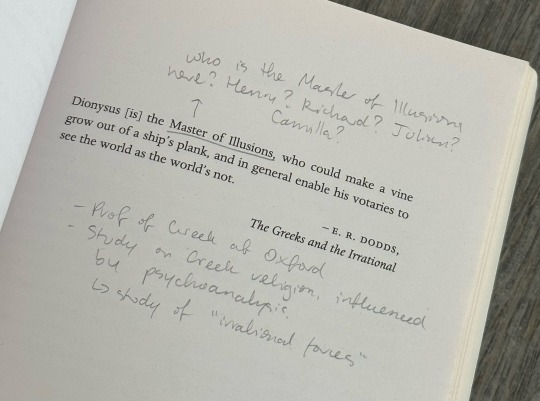 who is the Master of Illusions
here? Henry? Richard? Julian?
Camilla?
Dionysus [is] the Master of Illusions, who could make a vine
grow out of a ship's plank, and in general enable his votaries to
see the world as the world's not.
– E. R. DODDS,
The Greeks and the Irrational
- Prof of Greek at Oxford
- Study on Greek religion, influenced
by psychoanalysis.
↳ study of "irrational forces"